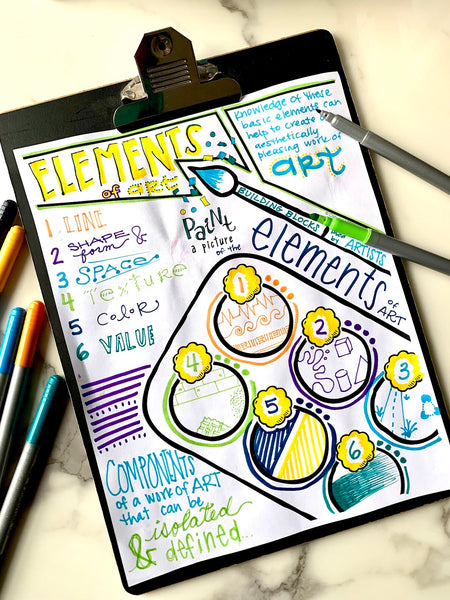 ELEMENTS
of art
Knowledge of these
basic elements can
help to create
aesthetically
pleasing work of
art
1 LINE
2 SHAPE &
form
3 SPACE
4 Texture
5 COLOR
6 VALUE
Paint
a picture
of the
BUILDING BLOCKS
by ARTISTS
elements
of
ART
1
2
3
4
5
6
COMPONENTS
of a work of ART
that can be
isolated
& defined...